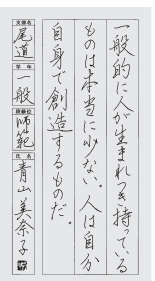 一般的に人が生まれつき持っている
ものは本当に少ない。人は自分
自身で創造するものだ。
支部名 尾道 学年 一般 段級位 師範 氏名 青山美奈子